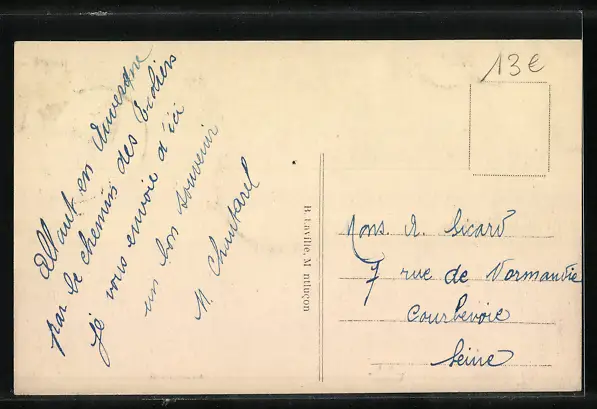 Allant en Auvergne
par le chemin des Ecoliers
je vous envoie d'ici
un bon souvenir
M. Chantarel
B. taville, M ntluçon
13€
Mons. A. Sicard
7 rue de Normandie
Courbevoie
Seine